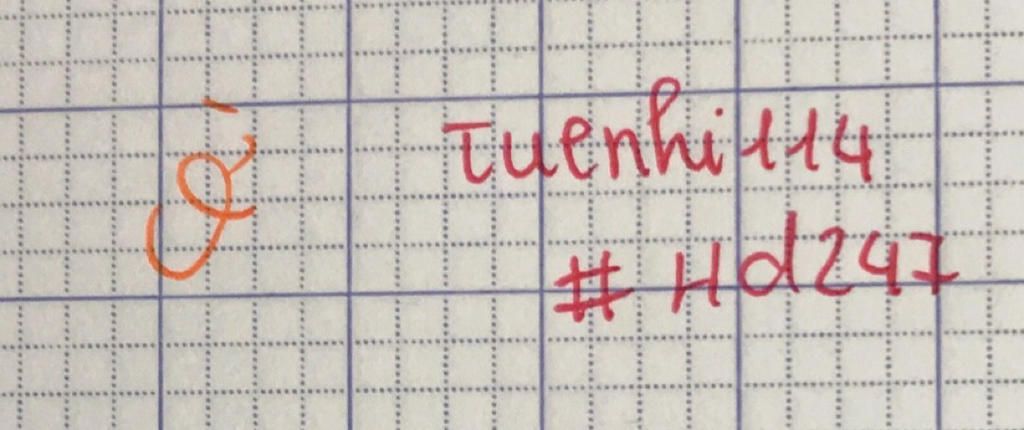 Tuenhi114
# Hd247